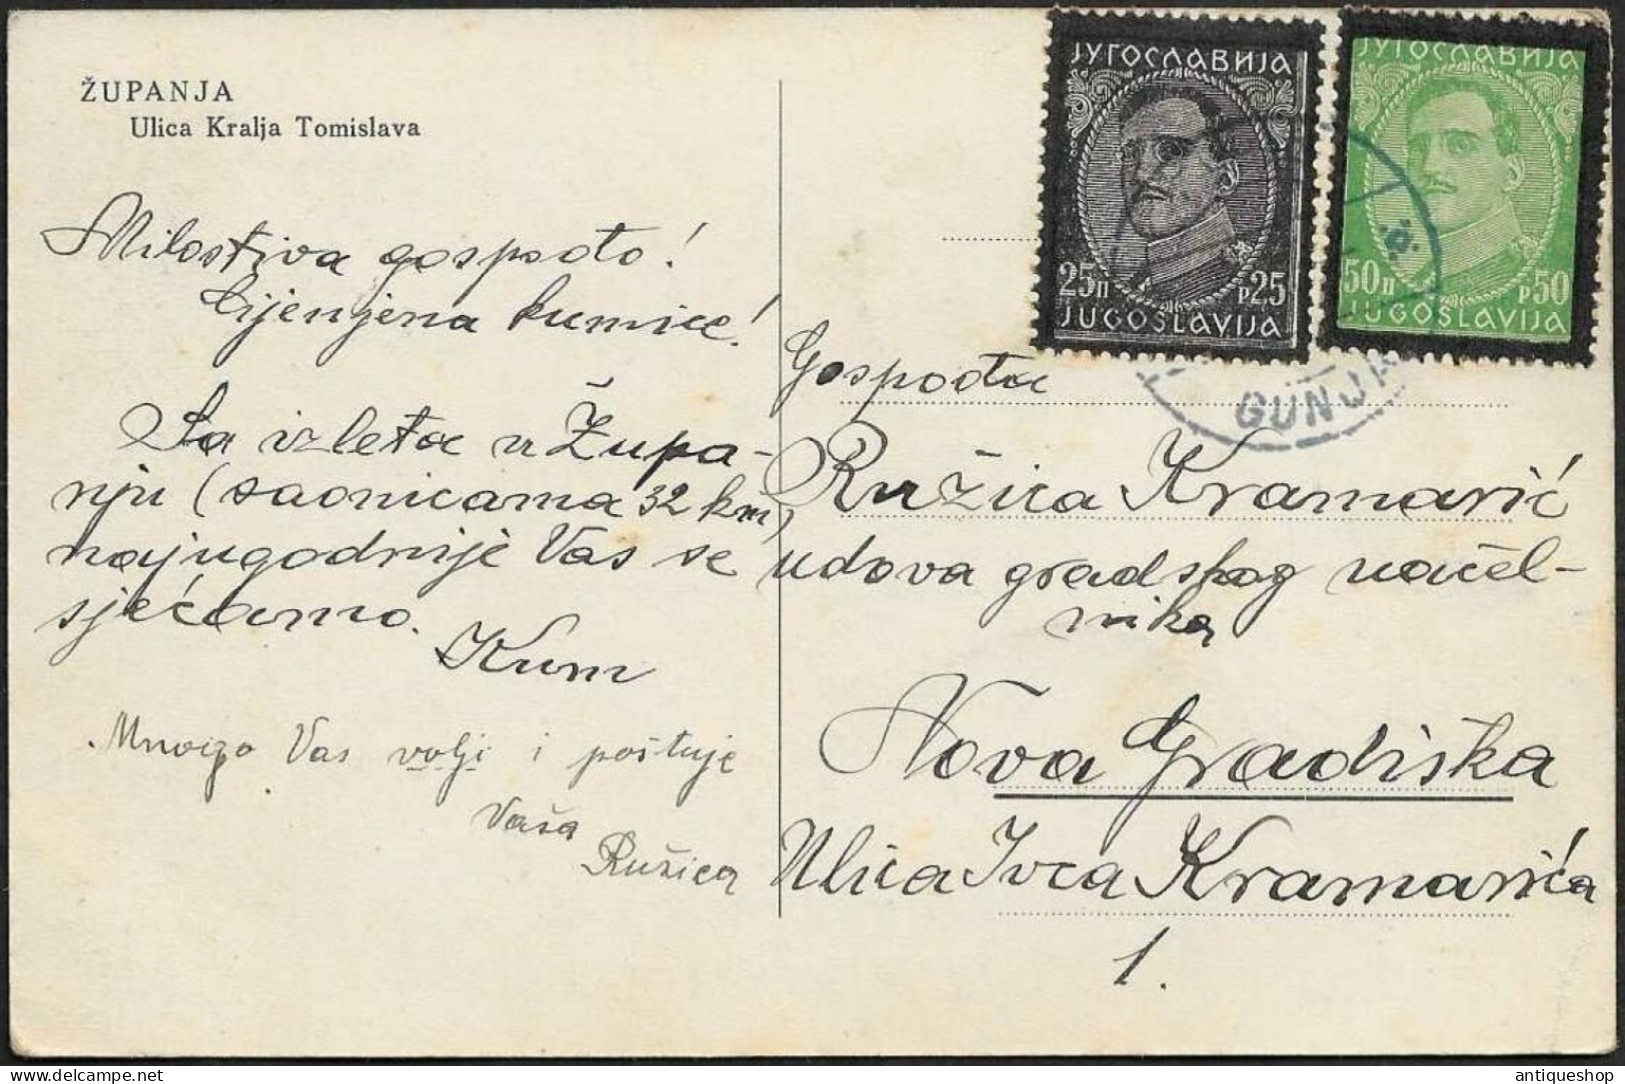 ŽUPANJA
Ulica Kralja Tomislava
Milostiva gospođo!
Cijenjena kumice!
Sa izleta u Župa-
nju (saonicama 32 km)
najugodnije Vas se
sjećamo.
Kum
Mnogo Vas volji i poštuje
Vaša
Ružica
ЈУГОСЛАВИЈА
25п р25
JUGOSLAVIJA
ЈУГОСЛАВИЈА
50п р50
JUGOSLAVIJA
GUNJA
Gospođa
Ružica Kramarić
udova gradskog načel-
nika
Nova Gradiška
Ulica Ivca Kramarića
1.
delcampe.net
antiqueshop